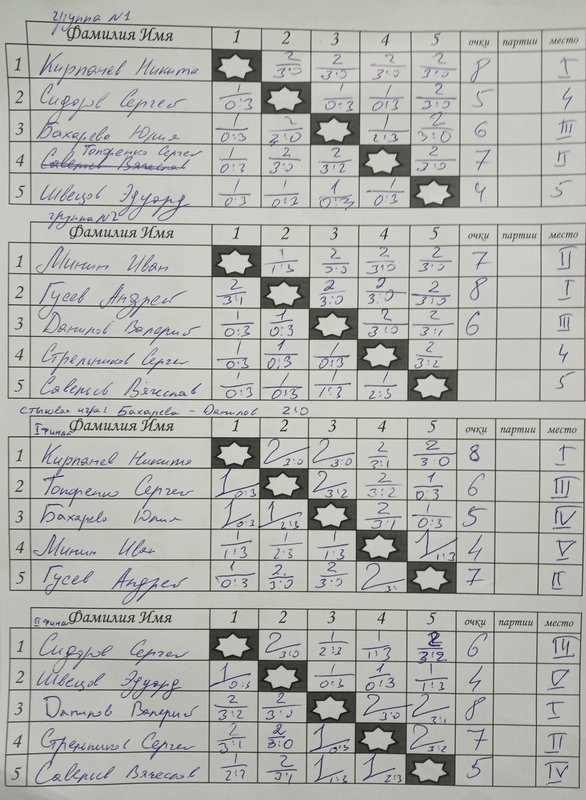 группа №1
Фамилия Имя 1 2 3 4 5 очки партии место
1 Кирпанев Никита 2 3:0 2 3:0 2 3:0 2 3:0 8 I
2 Сидоров Сергей 1 0:3 1 0:3 1 0:3 2 3:0 5 4
3 Бахарева Юлия 1 0:3 2 3:0 1 2:3 2 3:0 6 III
4 Топоренко Сергей 1 0:3 2 3:0 2 3:2 2 3:0 7 II
5 Швецов Эдуард 1 0:3 1 0:3 1 0:3 1 0:3 4 5
группа №2
Фамилия Имя 1 2 3 4 5 очки партии место
1 Минин Иван 1 1:3 2 3:0 2 3:0 2 3:0 7 II
2 Гусев Андрей 2 3:1 2 3:0 2 3:0 2 3:0 8 I
3 Данилов Валерий 1 0:3 1 0:3 2 3:0 2 3:1 6 III
4 Стрельников Сергей 1 0:3 1 0:3 1 0:3 2 3:2 4
5 Савельев Вячеслав 1 0:3 1 0:3 1 1:3 1 2:3 5
стыковая игра: Бахарева - Данилов 2:0
I финал
Фамилия Имя 1 2 3 4 5 очки партии место
1 Кирпанев Никита 2 3:0 2 3:0 2 3:1 2 3:0 8 I
2 Топоренко Сергей 1 0:3 2 3:2 2 3:2 1 0:3 6 III
3 Бахарева Юлия 1 0:3 1 2:3 2 3:1 1 0:3 5 IV
4 Минин Иван 1 1:3 1 2:3 1 1:3 1 1:3 4 V
5 Гусев Андрей 1 0:3 2 3:0 2 3:0 2 7 II
II финал
Фамилия Имя 1 2 3 4 5 очки партии место
1 Сидоров Сергей 2 3:0 1 2:3 1 1:3 2 3:2 6 III
2 Швецов Эдуард 1 0:3 1 0:3 1 0:3 1 1:3 4 V
3 Данилов Валерий 2 3:2 2 3:0 2 3:0 2 3:1 8 I
4 Стрельников Сергей 2 3:1 2 3:0 1 0:3 2 3:2 7 II
5 Савельев Вячеслав 1 2:3 2 3:1 1 1:3 1 2:3 5 IV